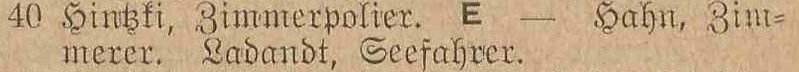 40 Hintzki, Zimmerpolier. E — Hahn, Zim=
merer. Ladandt, Seefahrer.